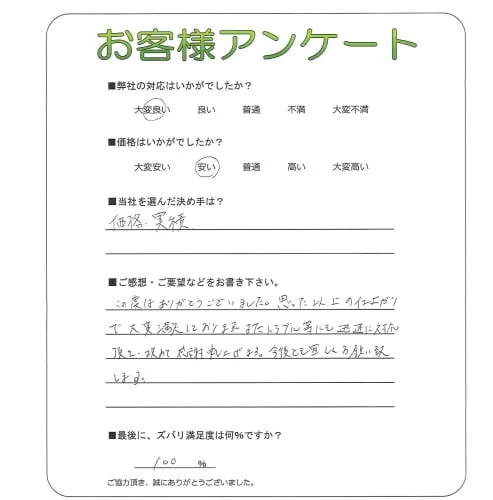 お客様アンケート
■弊社の対応はいかがでしたか?
大変良い 良い 普通 不満 大変不満
■価格はいかがでしたか?
大変安い 安い 普通 高い 大変高い
■当社を選んだ決め手は?
価格・実積
■ご感想・ご要望などをお書き下さい。
この度はありがとうございました。思った以上の仕上がり
で大変満足しております。またトラブル等にも迅速に対応
頂き、改めて感謝申し上げます。今後とも宜しくお願い致
します。
■最後に、ズバリ満足度は何%ですか?
100 %
ご協力頂き、誠にありがとうございました。